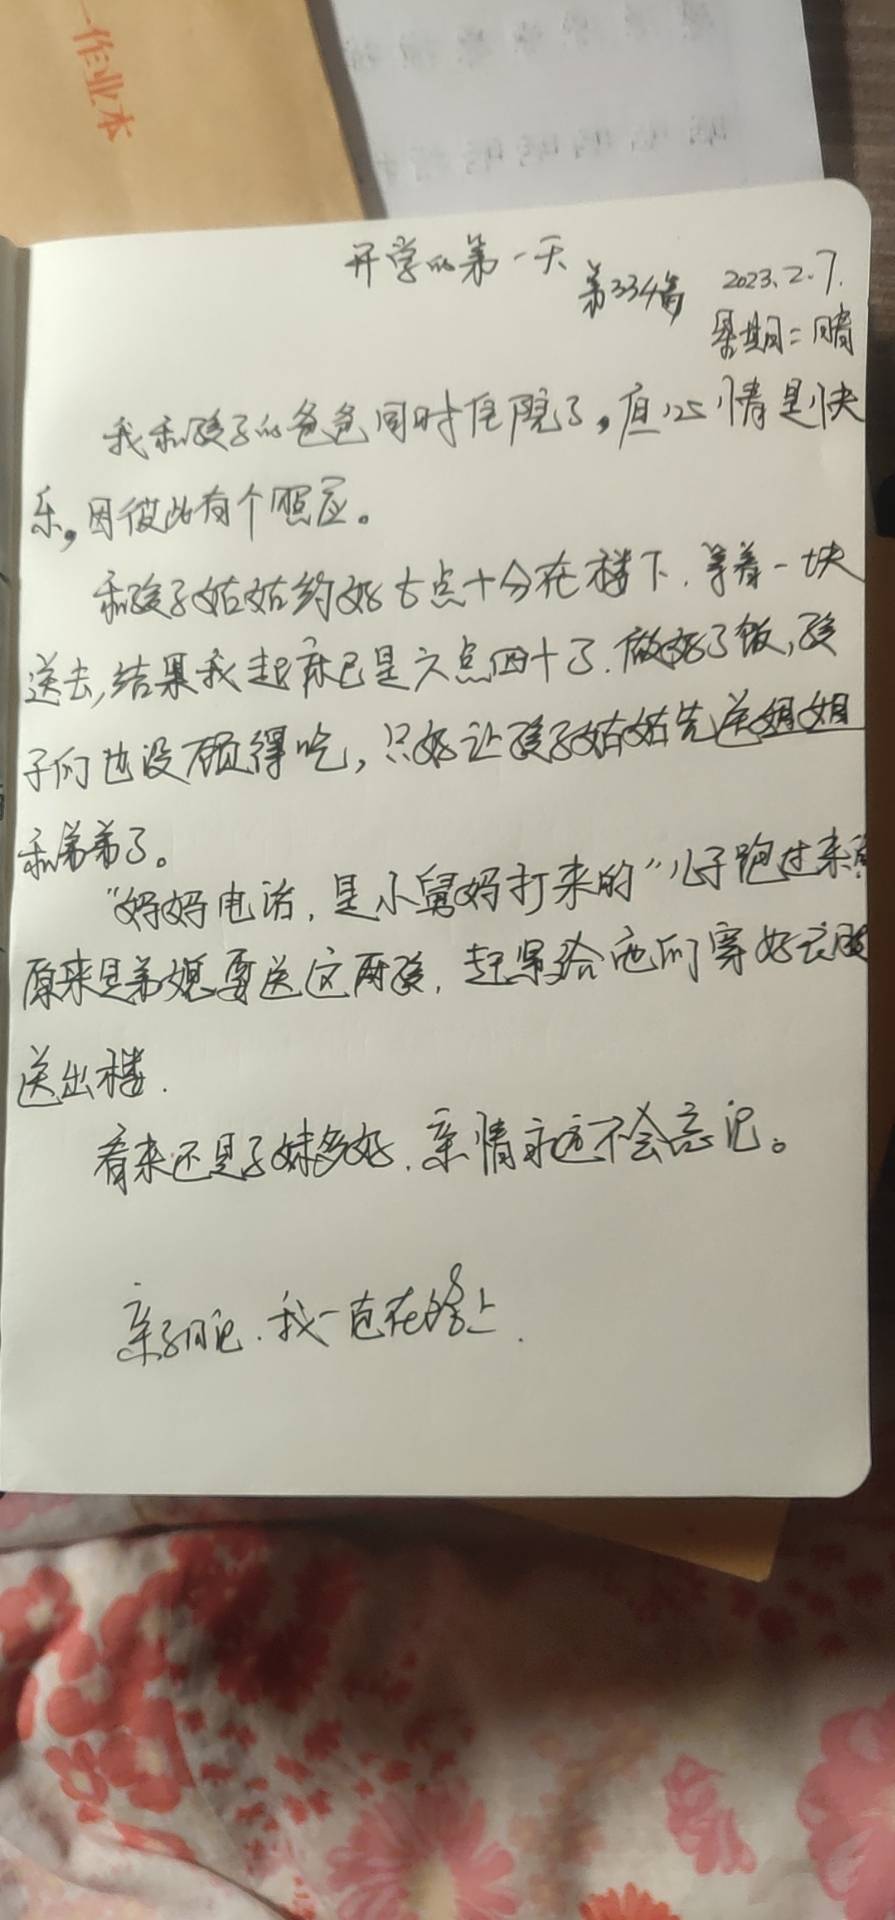 作业本
开学的第一天
第334篇
2023.2.7.
星期二 晴
我和孩子的爸爸同时住院了，但心情是快
乐，因彼此有个照应。
和孩子姑姑约好七点十分在楼下，等着一块
送去，结果我起床已是六点四十了。做好了饭，孩
子们也没顾得吃，只好让孩子姑姑先送姐姐
和弟弟了。
"妈妈电话，是小舅妈打来的"儿子跑过来
原来是弟媳要送这两孩，赶紧给他们穿好衣服
送出楼．
看来还是子妹多好．亲情永远不会忘记。
亲子日记．我一直在路上．